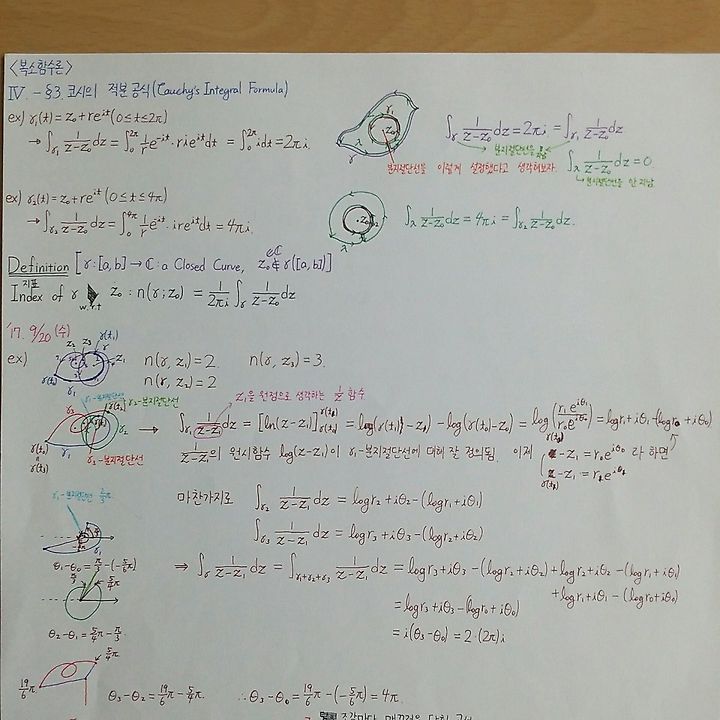 <복소함수론>
IV. - §3. 코시의 적분 공식 (Cauchy's Integral Formula)
ex) γ₁(t) = z₀ + re^{it} (0≤t≤2π)
→ ∫_{γ₁} 1/(z-z₀) dz = ∫₀^{2π} 1/r e^{-it}·rie^{it}dt = ∫₀^{2π} i dt = 2πi.
∫_γ 1/(z-z₀) dz = 2πi = ∫_{γ₁} 1/(z-z₀) dz
분지절단선을 이렇게 설정했다고 생각해보자.
∫_λ 1/(z-z₀) dz = 0
분지절단선을 안 지남.
ex) γ₂(t) = z₀ + re^{it} (0≤t≤4π)
→ ∫_{γ₂} 1/(z-z₀) dz = ∫₀^{4π} 1/r e^{-it}·ire^{it}dt = 4πi.
∫_λ 1/(z-z₀) dz = 4πi = ∫_{γ₂} 1/(z-z₀) dz.
Definition [γ:[a,b] → ℂ: a Closed Curve, z₀ ∉ γ([a,b])]
∈ℂ
지표
Index of γ w.r.t z₀ : n(γ;z₀) = 1/2πi ∫_γ 1/(z-z₀) dz
'17. 9/20 (수)
ex) n(γ, z₁) = 2. n(γ, z₃) = 3.
n(γ, z₂) = 2
γ₁-분지절단선
γ₂-분지절단선
γ₃-분지절단선
z₁을 원점으로 생각하는 1/z 함수
→ ∫_{γ₁} 1/(z-z₁) dz = [ln(z-z₁)]_{γ(t₀)}^{γ(t₁)} = log(γ(t₁)-z₁) - log(γ(t₀)-z₀) = log(r₁e^{iθ₁}/r₀e^{iθ₀}) = logr₁+iθ₁-(logr₀+iθ₀)
1/(z-z₁)의 원시함수 log(z-z₁)이 γ₁-분지절단선에 대해 잘 정의됨. 이제 γ(t₀)-z₁=r₀e^{iθ₀} 라 하면
γ₁-분지절단선
마찬가지로 ∫_{γ₂} 1/(z-z₁) dz = logr₂+iθ₂-(logr₁+iθ₁)
∫_{γ₃} 1/(z-z₁) dz = logr₃+iθ₃-(logr₂+iθ₂)
θ₁-θ₀ = π/3-(-5/6π)
⇒ ∫_γ 1/(z-z₁) dz = ∫_{γ₁+γ₂+γ₃} 1/(z-z₁) dz = logr₃+iθ₃-(logr₂+iθ₂)+logr₂+iθ₂-(logr₁+iθ₁)
+logr₁+iθ₁-(logr₀+iθ₀)
π/3
5/4π
= logr₃+iθ₃-(logr₀+iθ₀)
θ₂-θ₁ = 5/4π-π/3
= i(θ₃-θ₀) = 2·(2π)i
5/4π
19/6π
θ₃-θ₂ = 19/6π-5/4π. ∴θ₃-θ₀ = 19/6π-(-5/6π) = 4π.